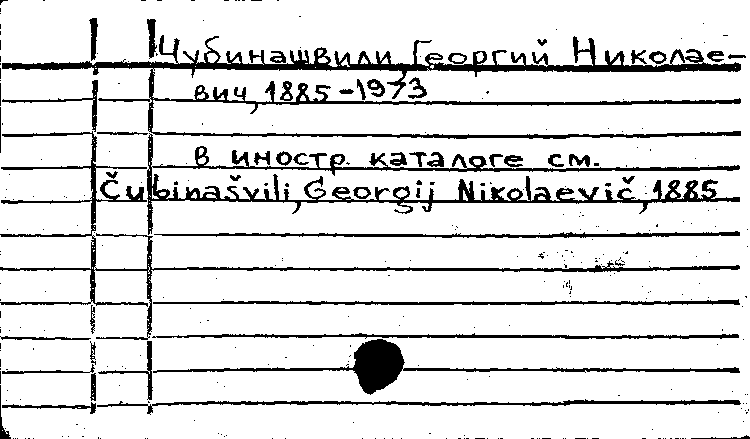 Чубинашвили, Георгий Николае-
вич, 1885-1973
в иностр. каталоге см.
Čubinašvili, Georgij Nikolaevič, 1885